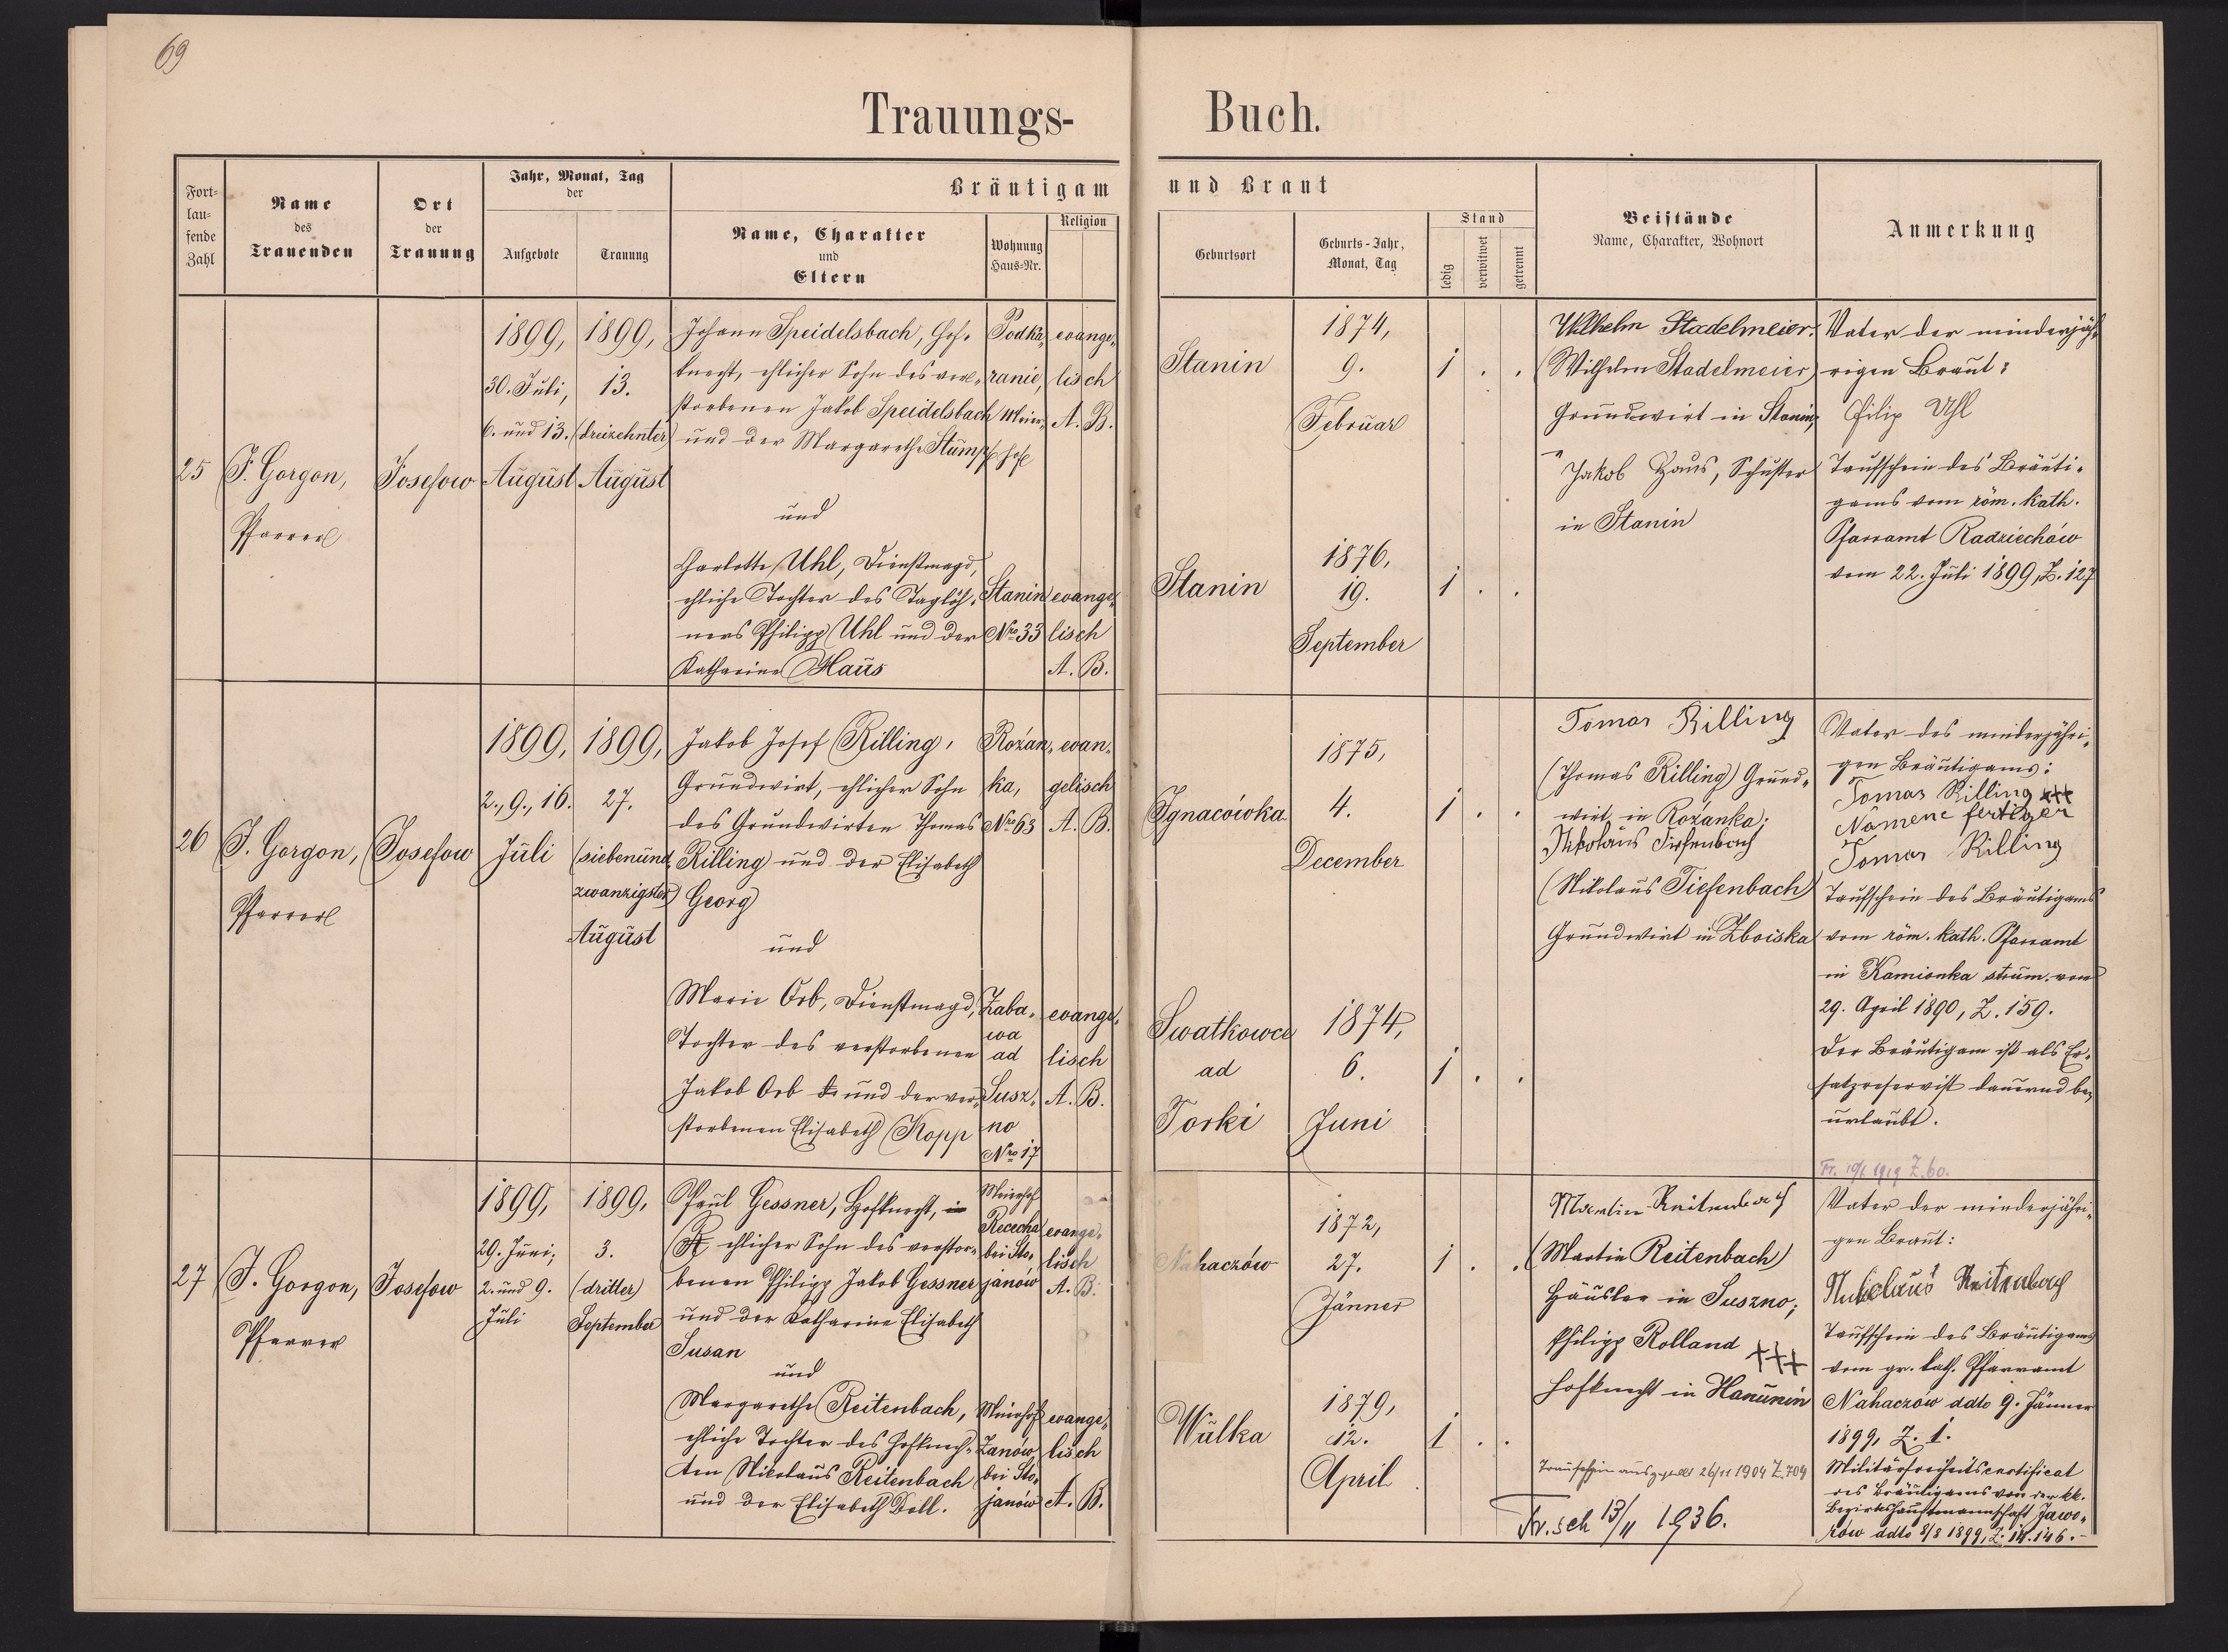 69
Trauungs-
Buch.
Fort-
lau-
fende
Zahl
Name
des
Trauenden
Ort
der
Trauung
Jahr, Monat, Tag
der
Aufgebote
Trauung
Bräutigam
Name, Charakter
und
Eltern
Wohnung
Haus-Nr.
Religion
und Braut
Geburtsort
Geburts-Jahr,
Monat, Tag
Stand
ledig
verwitwet
getrennt
Beistände
Name, Charakter, Wohnort
Anmerkung
25
J. Gorgon,
Pfarrer
Josefow
1899,
30. Juli,
6. und 13.
August
1899,
13.
(dreizehnter)
August
Johann Speidelsbach, Hof-
knecht, ehlicher Sohn des ver-
storbenen Jakob Speidelsbach
und der Margarethe Stumpf
Podka-
ranie,
Meier-
hof
evange-
lisch
A. B.
und
Charlotte Uhl, Dienstmagd,
ehliche Tochter des Taglöh-
ners Philipp Uhl und der
Katharina Haus
Stanin
Nro 33
evange-
lisch
A. B.
Stanin
1874,
9.
Februar
1 . .
Stanin
1876,
19.
September
1 . .
Wilhelm Stadelmeier.
(Wilhelm Stadelmeier)
Grundwirt in Stanin;
Jakob Haus, Schuster
in Stanin
Vater der minderjäh-
rigen Braut:
Filip Uhl
Taufschein des Bräuti-
gams vom röm. kath.
Pfarramt Radziechów
vom 22. Juli 1899, Z. 127
26
J. Gorgon,
Pfarrer
Josefow
1899,
2., 9., 16.
Juli
1899,
27.
(siebenund
zwanzigster)
August
Jakob Josef Rilling,
Grundwirt, ehlicher Sohn
des Grundwirten Thomas
Rilling und der Elisabeth
Georg
Rożan-
ka,
Nro 63
evan-
gelisch
A. B.
und
Marie Orb, Dienstmagd,
Tochter des verstorbenen
Jakob Orb und der ver-
storbenen Elisabeth Kopp
Zaba-
wa
ad
Susz-
no
Nro 17
evange-
lisch
A. B.
Ignacówka
1875,
4.
December
1 . .
Swatkowce
ad
Torki
1874,
6.
Juni
1 . .
Tomas Rilling
(Thomas Rilling) Grund-
wirt in Rożanka;
Nikolaus Tiefenbach
(Nikolaus Tiefenbach)
Grundwirt in Zboiska
Vater des minderjähri-
gen Bräutigams:
Tomas Rilling +++
Namene fertiger
Tomas Rilling
Taufschein des Bräutigams
vom röm. kath. Pfarramt
in Kamionka strum. vom
29. April 1890, Z. 159.
Der Bräutigam ist als Er-
satzreservist dauernd be-
urlaubt.
1919 Z. 60.
27
J. Gorgon,
Pfarrer
Josefow
1899,
29. Juni;
2. und 9.
Juli
1899,
3.
(dritter)
September
Paul Gessner, Hofknecht, in
R ehlicher Sohn des verstor-
benen Philipp Jakob Gessner
und der Katharine Elisabeth
Susan
Meierhof
bei Sto-
janów
evange-
lisch
A. B.
und
Margarethe Reitenbach,
ehliche Tochter des Hofknech-
ten Nikolaus Reitenbach
und der Elisabeth Doll.
Meierhof
Zanów
bei Sto-
janów
evange-
lisch
A. B.
Nahaczów
1872,
27.
Jänner
1 . .
Wulka
1879,
12.
April
1 . .
Martin Reitenbach
(Martin Reitenbach)
Häusler in Suszno;
Philipp Rolland
+++
Hofknecht in Hanunin
Trauschein ausgestellt 26/11 1904 Z. 704
Tr. sch 13/11 1936.
Vater der minderjähri-
gen Braut:
Nikolaus Reitenbach
Taufschein des Bräutigams
vom gr. kath. Pfarramt
Nahaczów ddto 9. Jänner
1899, Z. 1.
Militärfreiheitscertificat
des Bräutigams von der kk.
Bezirkshauptmannschaft Jawo-
rów ddto 8/8 1899, Z. 14.146.-